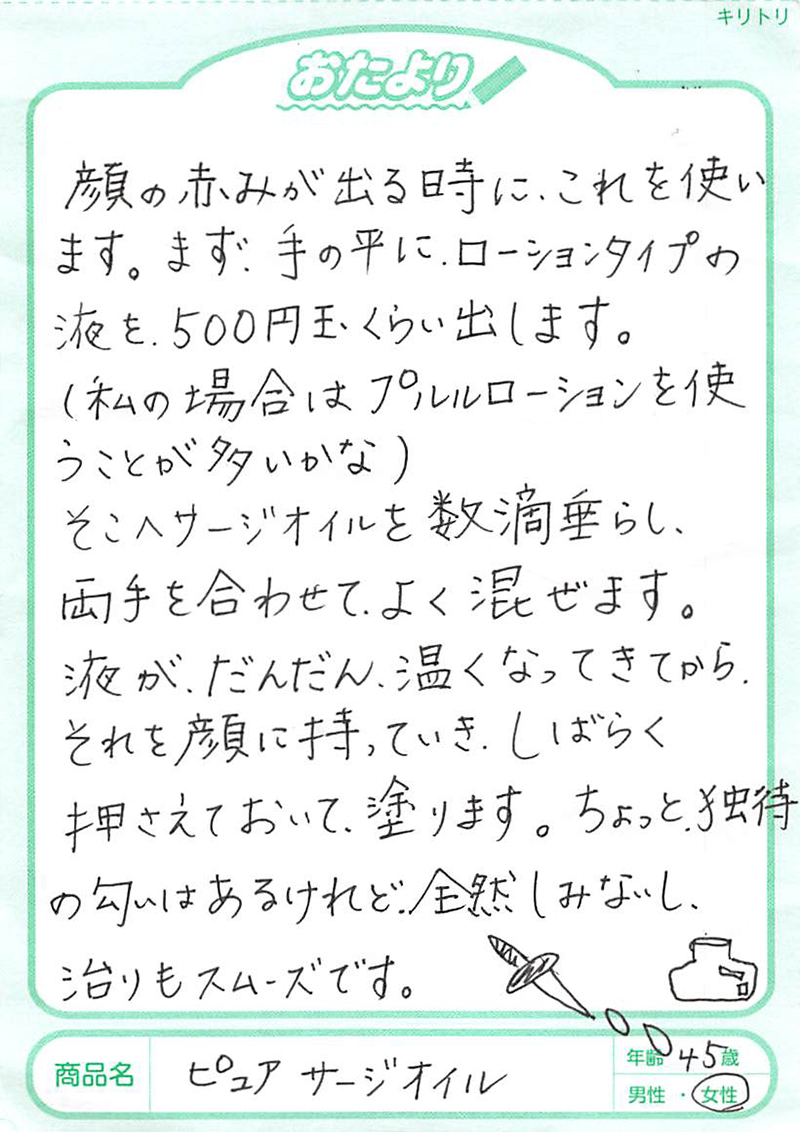 キリトリ
おたより
顔の赤みが出る時に、これを使い
ます。まず、手の平に、ローションタイプの
液を、500円玉くらい出します。
(私の場合はプルルローションを使
うことが多いかな)
そこへサージオイルを数滴垂らし、
両手を合わせて、よく混ぜます。
液が、だんだん、温くなってきてから、
それを顔に持っていき、しばらく
押さえておいて、塗ります。ちょっと、独待
の匂いはあるけれど、全然しみないし、
治りもスムーズです。
商品名 ピュア サージオイル
年齢 45歳
男性・女性